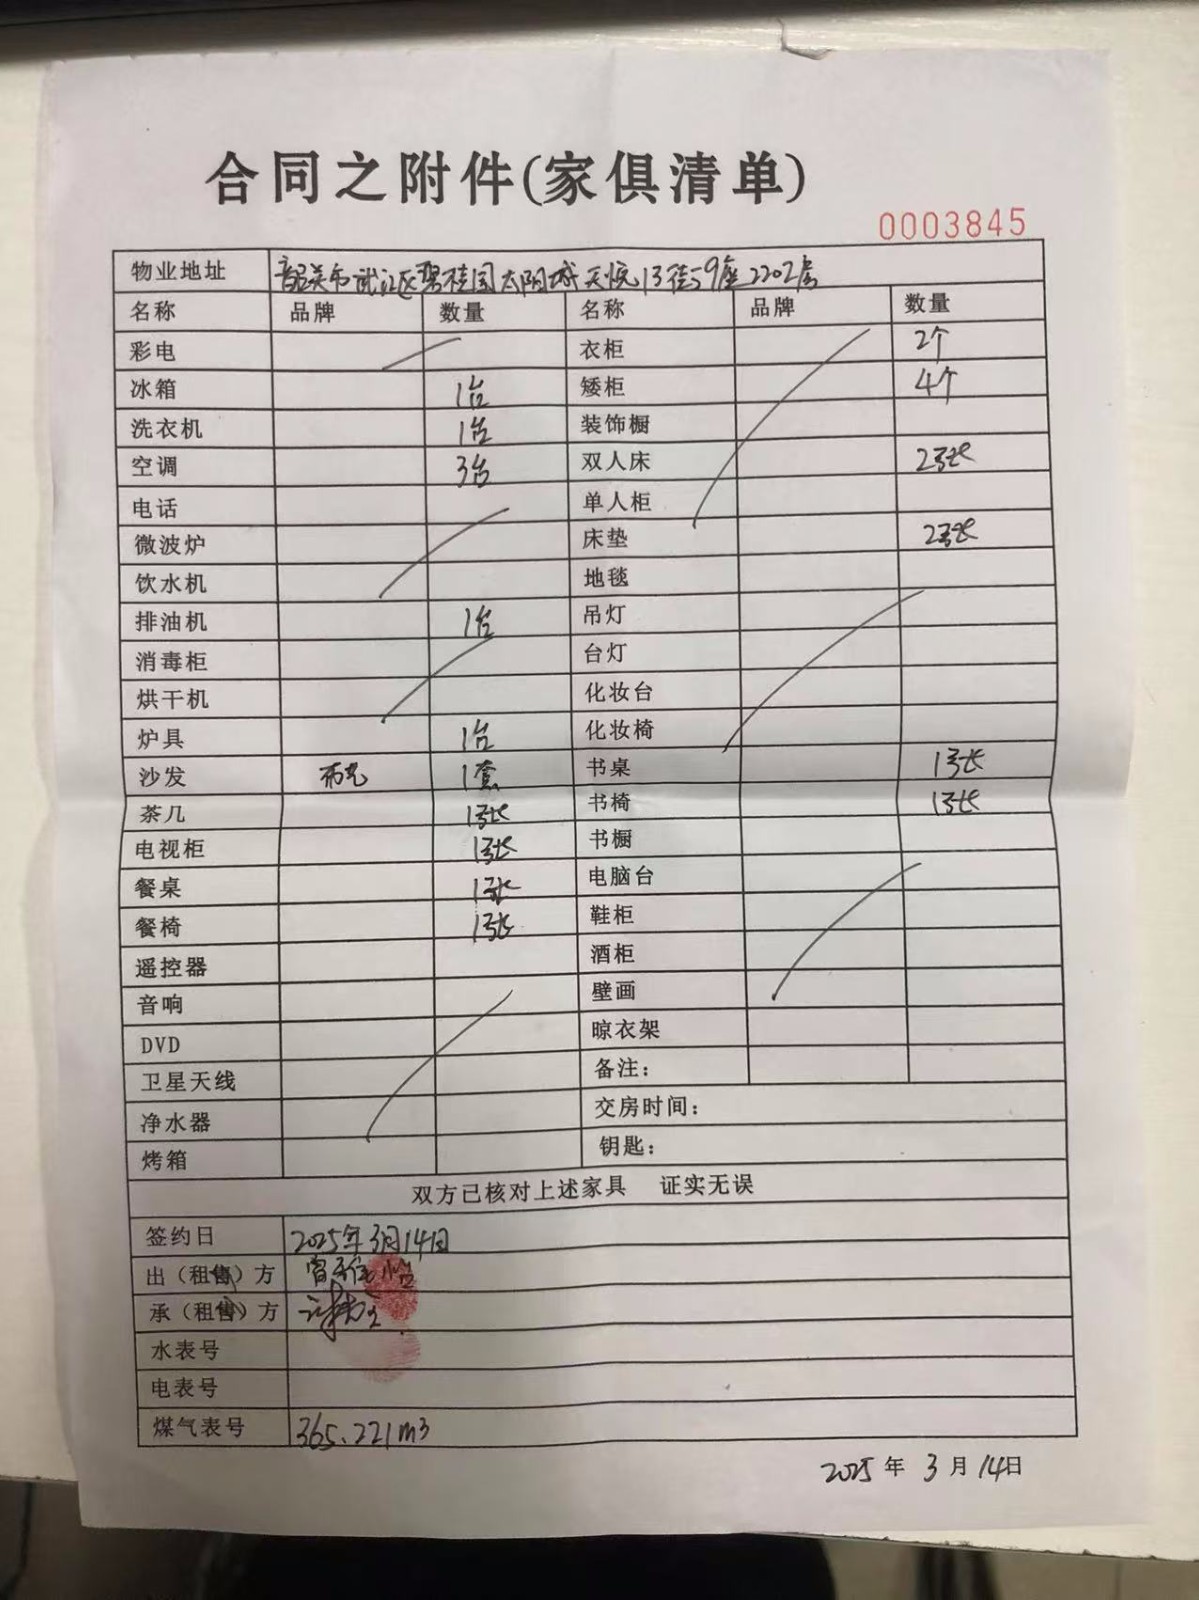 合同之附件(家俱清单)
0003845
物业地址 韶关市武江区碧桂园太阳城天悦13街59座2202房
名称 品牌 数量 名称 品牌 数量
彩电 衣柜 2个
冰箱 1台 矮柜 4个
洗衣机 1台 装饰橱
空调 3台 双人床 2张
电话 单人柜
微波炉 床垫 2张
饮水机 地毯
排油机 1台 吊灯
消毒柜 台灯
烘干机 化妆台
炉具 1台 化妆椅
沙发 1套 书桌 1张
茶几 1张 书椅 1张
电视柜 1张 书橱
餐桌 1张 电脑台
餐椅 1张 鞋柜
遥控器 酒柜
音响 壁画
DVD 晾衣架
卫星天线 备注：
净水器 交房时间：
烤箱 钥匙：
双方已核对上述家具 证实无误
签约日 2025年3月14日
出（租售）方
承（租售）方
水表号
电表号
煤气表号 365.221m3
2025年3月14日